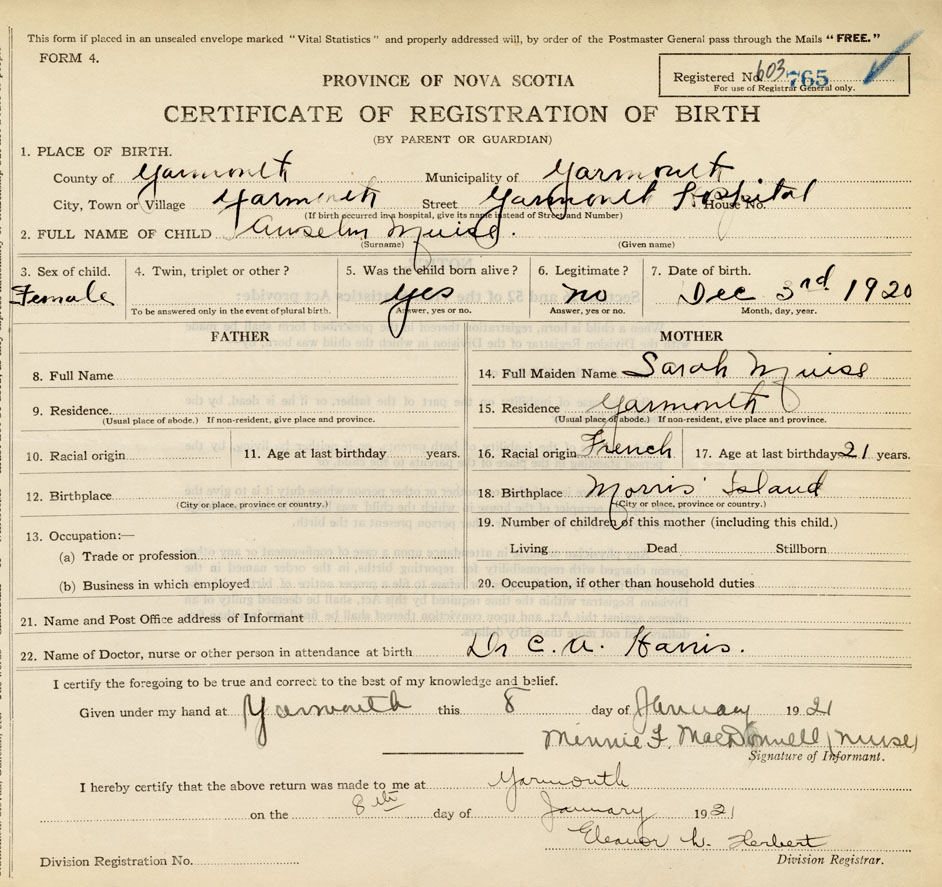 This form if placed in an unsealed envelope marked "Vital Statistics" and properly addressed will, by order of the Postmaster General pass through the Mails "FREE."
FORM 4.
Registered No. 603 765
For use of Registrar General only.
PROVINCE OF NOVA SCOTIA
CERTIFICATE OF REGISTRATION OF BIRTH
(BY PARENT OR GUARDIAN)
1. PLACE OF BIRTH.
County of Yarmouth Municipality of Yarmouth
City, Town or Village Yarmouth Street Yarmouth Hospital House No.
(If birth occurred in a hospital, give its name instead of Street and Number)
2. FULL NAME OF CHILD Anselm Muise.
(Surname) (Given name)
3. Sex of child. 4. Twin, triplet or other? 5. Was the child born alive? 6. Legitimate? 7. Date of birth.
Female yes no Dec 3rd 1920
To be answered only in the event of plural birth. Answer, yes or no. Answer, yes or no. Month, day, year.
FATHER MOTHER
8. Full Name 14. Full Maiden Name Sarah Muise
9. Residence. 15. Residence Yarmouth
(Usual place of abode.) If non-resident, give place and province. (Usual place of abode.) If non-resident, give place and province.
10. Racial origin 11. Age at last birthday years. 16. Racial origin French 17. Age at last birthday 21 years.
12. Birthplace 18. Birthplace Morris' Island
(City or place, province or country.) (City or place, province or country.)
13. Occupation:— 19. Number of children of this mother (including this child.)
(a) Trade or profession Living Dead Stillborn
(b) Business in which employed 20. Occupation, if other than household duties
21. Name and Post Office address of Informant
22. Name of Doctor, nurse or other person in attendance at birth Dr C. A. Harris.
I certify the foregoing to be true and correct to the best of my knowledge and belief.
Given under my hand at Yarmouth this 8 day of January 1921
Minnie F. MacDonnell (nurse)
Signature of Informant.
I hereby certify that the above return was made to me at Yarmouth
on the 8th day of January 1921
Eleanor W. Herbert
Division Registration No. Division Registrar.